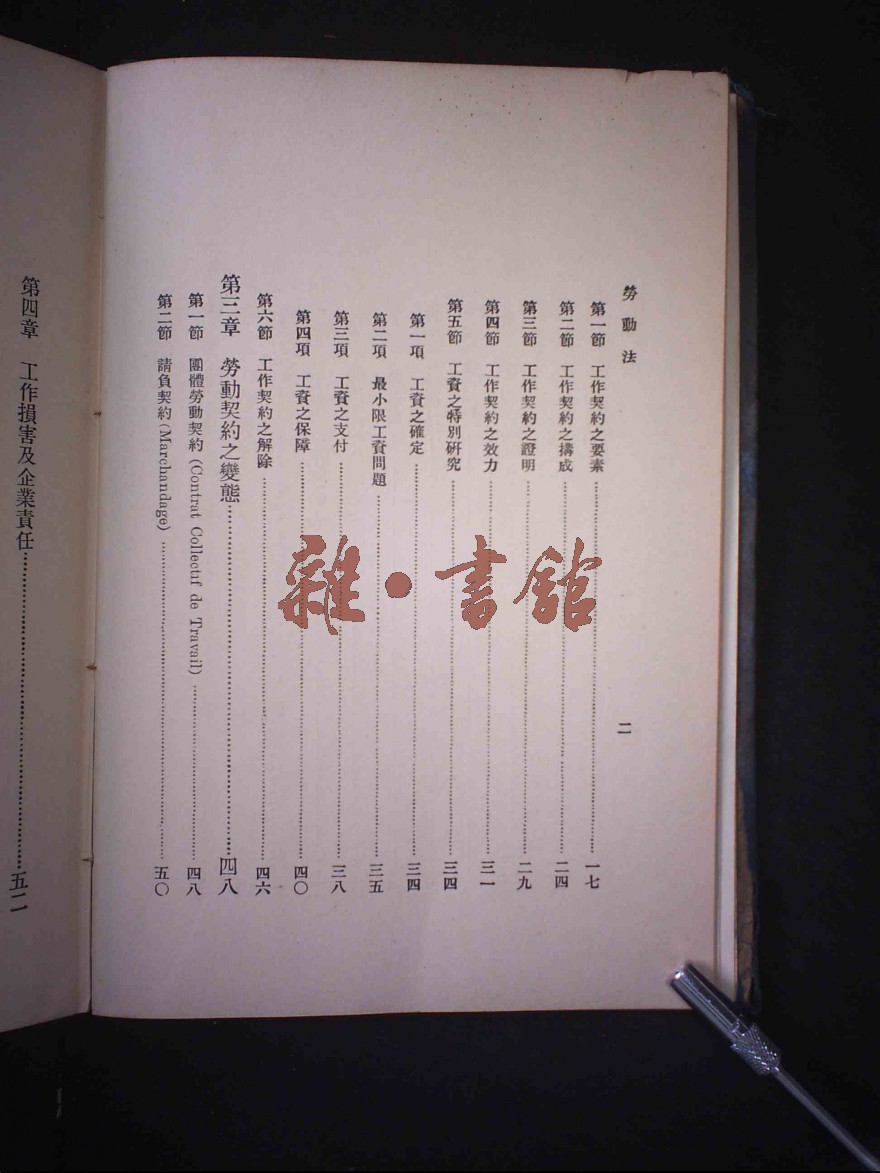 勞動法
二
第一節 工作契約之要素……一七
第二節 工作契約之搆成……二四
第三節 工作契約之證明……二九
第四節 工作契約之效力……三一
第五節 工資之特別研究……三四
第一項 工資之確定……三四
第二項 最小限工資問題……三五
第三項 工資之支付……三八
第四項 工資之保障……四〇
第六節 工作契約之解除……四六
第三章 勞動契約之變態……四八
第一節 團體勞動契約 (Contrat Collectif de Travail)……四八
第二節 請負契約 (Marchandage)……五〇
第四章 工作損害及企業責任……五二
雜·書館